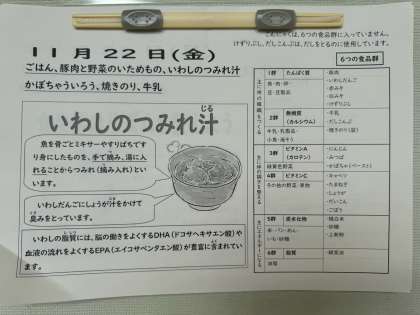 こんにゃくは、6つの食品群に入っていません。
けずりぶし、だしこんぶは、だしをとるのに使用しています。
11月22日(金)
ごはん、豚肉と野菜のいためもの、いわしのつみれ汁
かぼちゃういろう、焼きのり、牛乳
いわしのつみれ汁
じる
魚を骨ごとミキサーやすりばちです
り身にしたものを、手で摘み、湯に入
れることからつみれ(摘み入れ)とい
います。
いわしだんごにしょうが汁をかけて
臭みをとっています。
いわしの脂質には、脳の働きをよくするDHA(ドコサヘキサエン酸)や
血液の流れをよくするEPA(エイコサペンタエン酸)が豊富に含まれてい
ます。
6つの食品群
1群 たんぱく質
魚・肉・卵・
豆・豆製品
・豚肉
・いわしだんご
・赤みそ
・白みそ
・けずりぶし
2群 無機質
(カルシウム)
牛乳・乳製品・
小魚・海そう
・牛乳
・だしこんぶ
・焼きのり
3群 ビタミンA
(カロテン)
緑黄色野菜
・にんじん
・みつば
・かぼちゃ(ペースト)
4群 ビタミンC
その他の野菜・果物
・キャベツ
・たまねぎ
・しょうが
・だいこん
・ごぼう
5群 炭水化物
米・パン・めん・
いも・砂糖
・精白米
・砂糖
・上新粉
6群 脂質
油脂